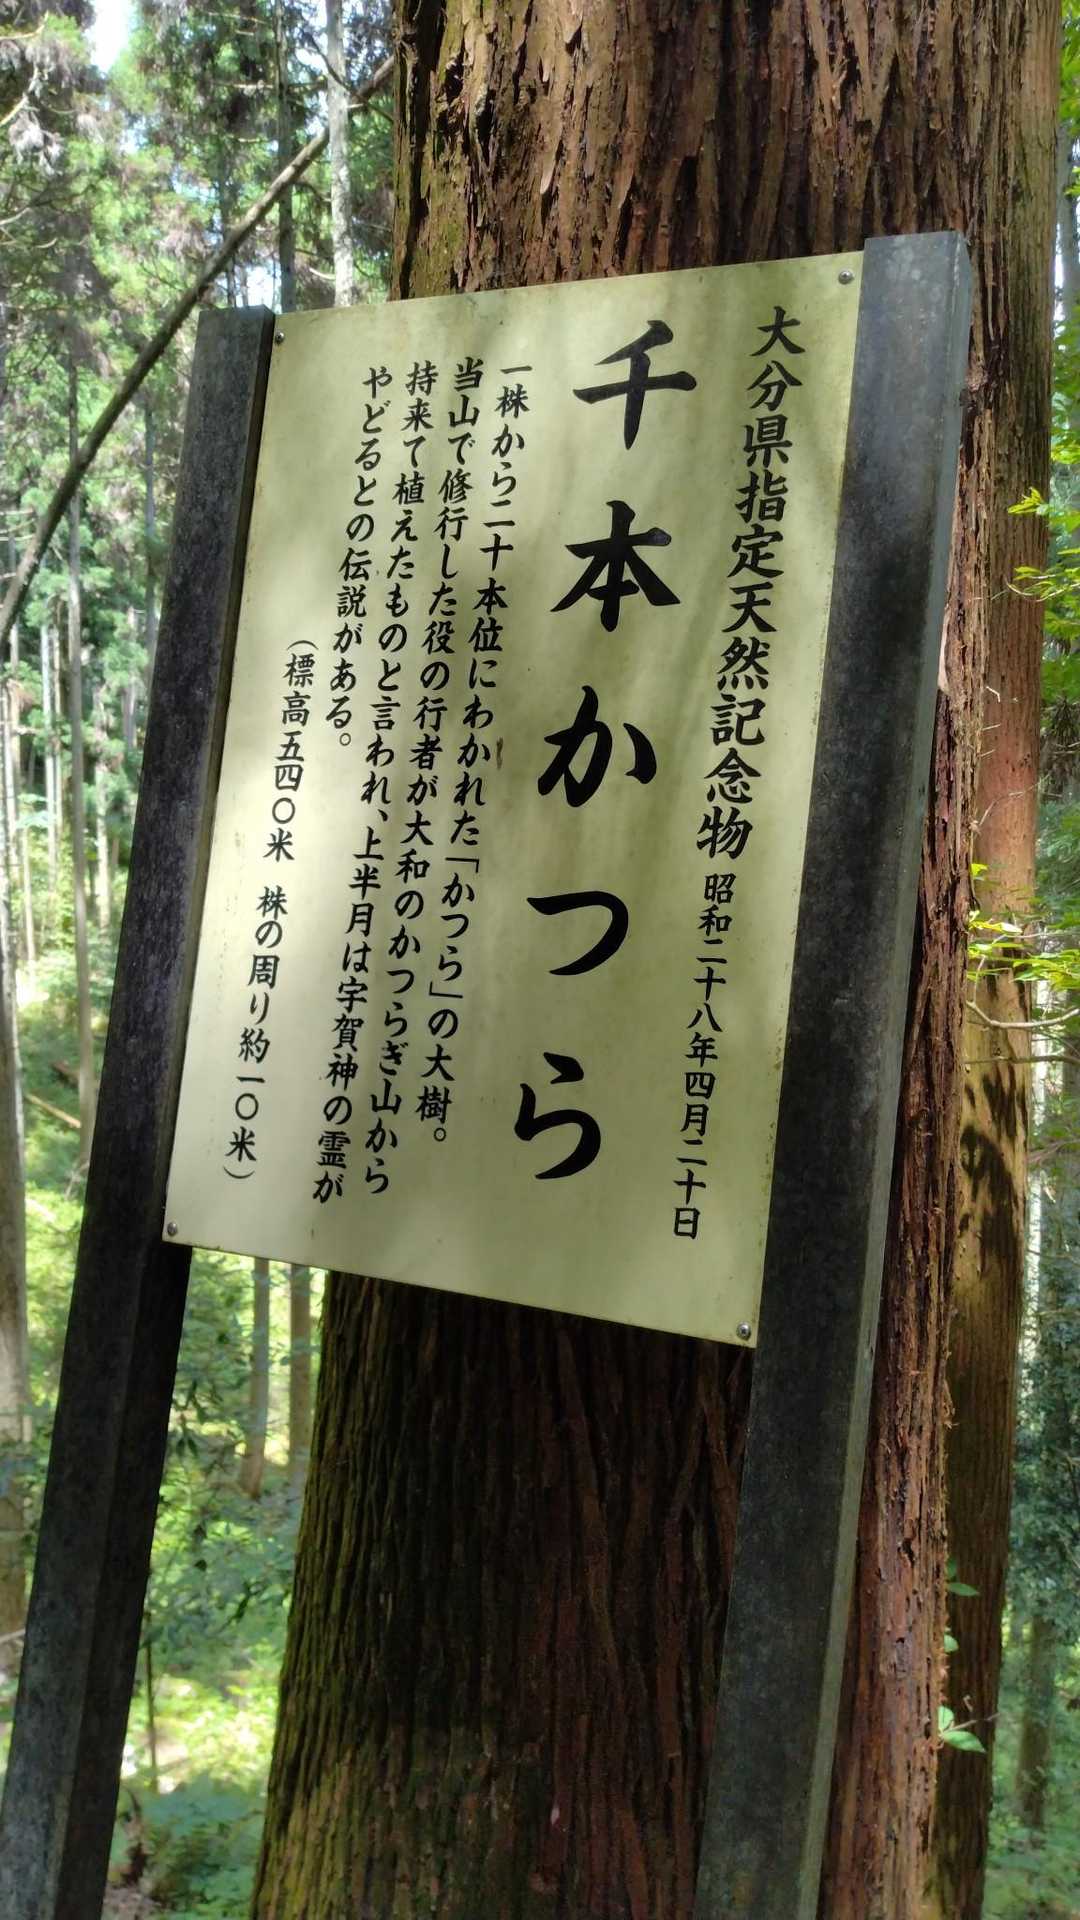 大分県指定天然記念物 昭和二十八年四月二十日
千本かつら
一株から二十本位にわかれた「かつら」の大樹。
当山で修行した役の行者が大和のかつらぎ山から
持来て植えたものと言われ、上半月は宇賀神の霊が
やどるとの伝説がある。
（標高五四〇米 株の周り約一〇米）